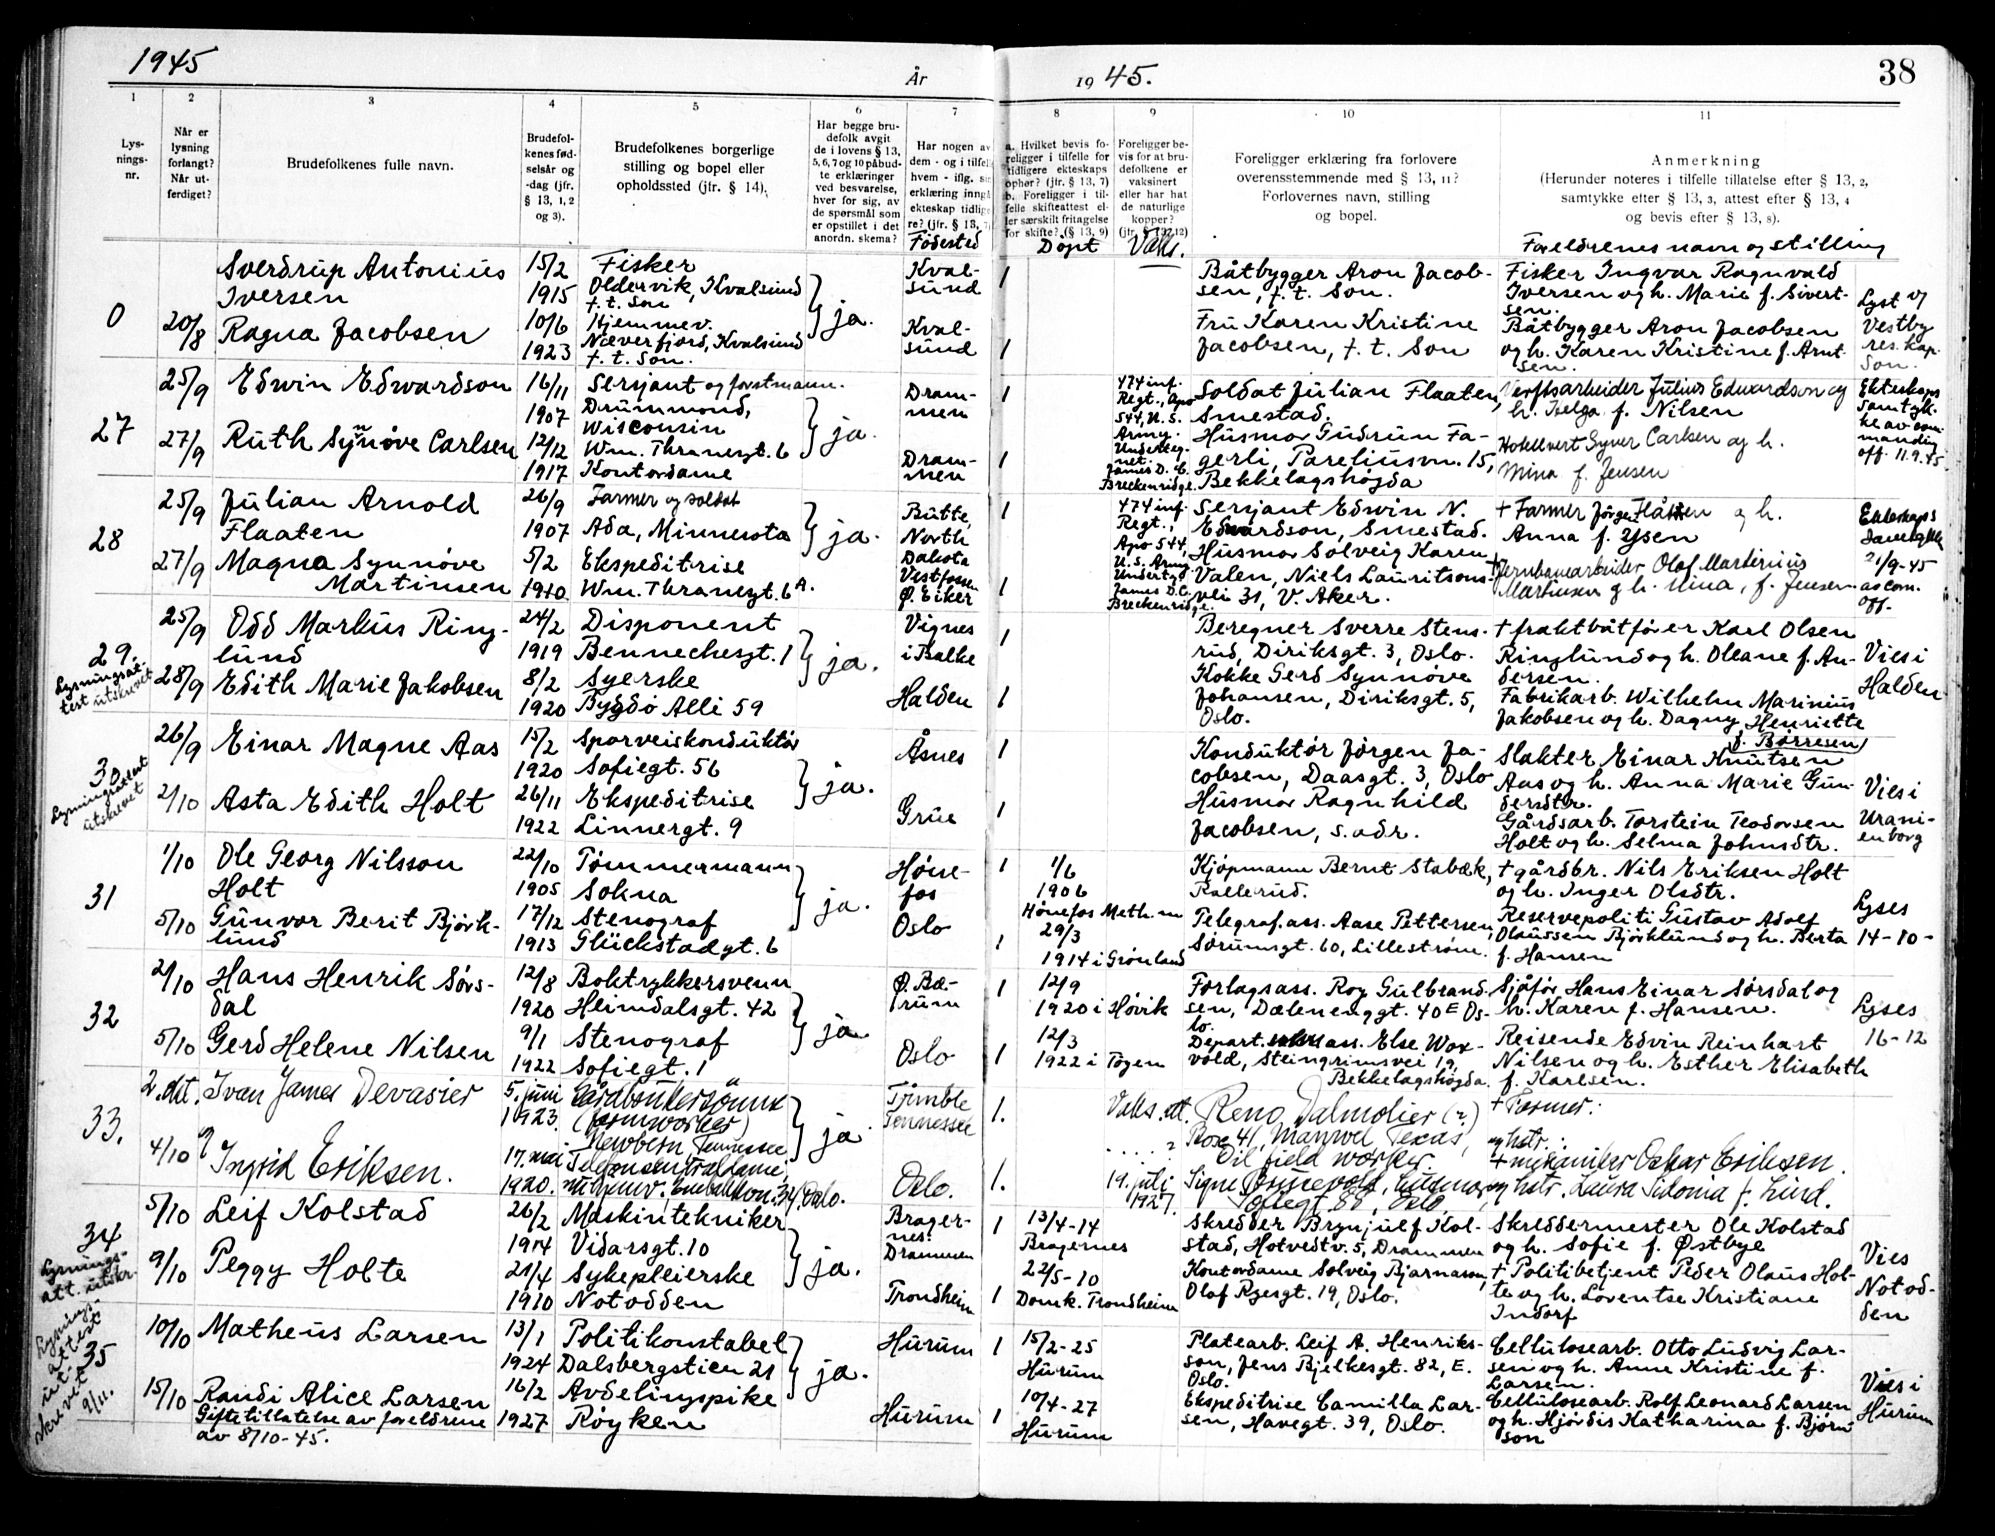 1945
År
19 45.
38
1
2
3
4
5
6
7
8
9
10
11
Lys-
nings-
nr.
Når er
lysning
forlangt?
Når ut-
ferdiget?
Brudefolkenes fulle navn.
Brudefol-
kenes fød-
selsår og
-dag (jfr.
§ 13, 1, 2
og 3).
Brudefolkenes borgerlige
stilling og bopel eller
opholdssted (jfr. § 14).
Har begge bru-
defolk avgit
de i lovens § 13,
5, 6, 7 og 10 påbud-
te erklæringer
ved besvarelse,
hver for sig, av
de spørsmål som
er opstillet i det
anordn. skema?
Har nogen av
dem - og i tilfel
hvem - iflg. si
erklæring inngå
ekteskap tidlig
re? (jfr. § 13, 7)
Fødested
a. Hvilket bevis fo-
religger i tilfelle for
tidligere ekteskaps
ophør? (jfr. § 13, 7)
b. Foreligger i til-
felle skifteattest el-
ler særskilt fritagelse
for skifte? (§ 13, 9)
Døpt
Foreligger be-
vis for at bru-
defolkene er
vaksinert
eller har hat
de naturlige
kopper?
(jfr. § 13, 12)
Vaks.
Foreligger erklæring fra forlovere
overensstemmende med § 13, 11?
Forlovernes navn, stilling
og bopel.
Anmerkning
(Herunder noteres i tilfelle tillatelse efter § 13, 2,
samtykke efter § 13, 3, attest efter § 13, 4
og bevis efter § 13, 8).
Foreldrenes navn og stilling
0
20/8
Sverdrup Antonius
Iversen
Ragna Jacobsen
15/2
1915
10/6
1923
Fisker
Oldervik, Kvalsund
t. t. Son
Hjemmev.
Næverfjord, Kvalsund
t. t. Son.
} ja.
Kval-
sund
Kval-
sund
1
1
Båtbygger Aron Jacob-
sen, t. t. Son.
Fru Karen Kristine
Jacobsen, t. t. Son
Fisker Ingvar Ragnvald
Iversen og h. Marie f. Sivert-
sen.
Båtbygger Aron Jacobsen
og h. Karen Kristine f. Arnt-
sen.
Lyst v/
Vestby
res. kap.
Son.
27
25/9
27/9
Edwin Edwardson
Ruth Synnøve Carlsen
16/11
1907
12/12
1917
Serjant og forstmann.
Drummond,
Wisconsin
Wm. Thranesgt. 6
Kontordame
} ja.
Dram-
men
Dram-
men
1
474 inf.
Regt., Apo
544, U. S.
Army.
Underteg-
net:
James D. C.
Breckenridge.
Soldat Julian Flaaten,
Smestad.
Husmor Gudrun Fa-
gerli, Pareliusvn. 15,
Bekkelagshøgda
Verftsarbeider Julius Edwardson og
h. Helga f. Nilsen
Hotellvert Syver Carlsen og h.
Mina f. Jensen
Ekteskaps
samtyk-
ke av com-
manding
off. 11.9.45.
28
25/9
27/9
Julian Arnold
Flaaten
Magna Synnøve
Martinsen
26/9
1907
5/2
1910
Farmer og soldat
Ada, Minnesota
Ekspeditrise
Wm. Thranesgt. 6 A.
} ja.
Butte,
North
Dakota
Vestfossen
Ø. Eiker
1
1
474 inf.
Regt.,
Apo 544,
U. S. Army.
Undertg.
James D. C.
Breckenridge.
Serjant Edwin N.
Edwardson, Smestad.
Husmor Solveig Karen
Valen, Niels Lauritsons-
vei 31, V. Aker.
+ Farmer Jørgen Flåten og h.
Anna f. Ysen
+ Jernbanearbeider Olaf Martinius
Martinsen og h. Mina, f. Jensen
Ekteskaps
samtykke
21/9-45
av com.
off.
29.
Lysningsat-
test utskrevet
25/9
28/9
Odd Markus Ring-
lund
Edith Marie Jakobsen
24/2
1919
8/2
1920
Disponent
Bennechesgt. 1
Syerske
Bygdø Alle 59
} ja.
Vignes
i Balke
Halden
1
1
Beregner Sverre Stens-
rud, Diriksgt. 3, Oslo.
Kokke Gerd Synnøve
Johansen, Diriksgt. 5,
Oslo.
+ fraktbåtfører Karl Olsen
Ringlund og h. Oleane f. An-
dersen.
Fabrikarb. Wilhelm Marinius
Jakobsen og h. Dagny Henriette
f. Børresen
Vies i
Halden
30
Lysningsattest
utskrevet
26/9
2/10
Einar Magne Aas
Asta Edith Holt
15/2
1920
26/11
1922
Sporveiskonduktør
Sofiegt. 56
Ekspeditrise
Linnergt. 9
} ja.
Åsnes
Grue
1
1
Konduktør Jørgen Ja-
cobsen, Daasgt. 3, Oslo
Husmor Ragnhild
Jacobsen, s. adr.
Slakter Einar Knutsen
Aas og h. Anna Marie Gun-
dersdtr.
Gårdsarb. Torstein Teodorsen
Holt og h. Selma Johnsdtr.
Vies i
Urani-
enborg
31
1/10
5/10
Ole Georg Nilsson
Holt
Gunvor Berit Bjørk-
lund
22/10
1905
17/12
1913
Tømmermann
Sokna
Stenograf
Glückstadgt. 6
} ja.
Høne-
fos
Oslo
1
1
1/6
1906
Hønefos Meth. m
29/3
1914 i Grønland
Kjøpmann Bernt Stabæk,
Rallerud.
Telegraf.ass. Aase Pettersen,
Sørumsgt. 60, Lillestrøm.
+ gårdbr. Nils Eriksen Holt
og h. Inger Olsdtr.
Reservepoliti Gustav Adolf
Olaussen Bjørklund og h. Berta
f. Hansen
Lyses
14-10-
32
2/10
5/10
Hans Henrik Sørs-
dal
Gerd Helene Nilsen
12/8
1920
9/1
1922
Boktrykkersvenn
Heimdalsgt. 42
Stenograf
Sofiegt. 1
} ja.
Ø. Bæ-
rum
Oslo
1
1
12/9
1920 i Høvik
12/3
1922 i Tøyen
Forlagsass. Roy Gulbrand-
sen, Dælenenggt. 40 E Os-
lo.
Depart. ass. Else Wox-
vold, Steingrimsvei 19,
Bekkelagshøgda.
Sjåfør Hans Einar Sørsdal og
h. Karen f. Hansen.
Reisende Edvin Reinhart
Nilsen og h. Esther Elisabeth
f. Karlsen.
Lyses
16-12
33.
2. okt.
4/10
Ivan James Devasier
Ingrid Eriksen.
5. juni
1923.
17. mai
1920.
Gårdbrukersønn
(farmworker)
Newbern, Tennessee
Telefonsentraldame,
34, Oslo.
} ja
Trimble
Tennessee
Oslo.
1.
1.
Vaks. att.
19. juli
1927.
Reno Dalmolier (?)
Box 41, Manvel Texas,
Oil field worker.
Signe Grinnevold, husmor,
Sofiegt. 88, Oslo
+ Farmer:
og hstr.:
+ mekaniker Oskar Eriksen.
og hstr. Laura Sidonia f. Lind.
34
Lysnings-
att. utskr.
5/10
9/10
Leif Kolstad
Peggy Holte
26/2
1914
21/4
1910
Maskintekniker
Vidarsgt. 10
Sykepleierske
Notodden
} ja.
Brager-
nes.
Drammen
Trondheim
1
1
13/4-14
Bragernes
22/5-10
Domk. Trondheim
Skredder Brynjulf Kol-
stad, Hotvedtv. 5, Drammen
Kontordame Solveig Bjarnason,
Olaf Ryesgt. 19, Oslo.
Skreddermester Ole Kolstad
og h. Sofie f. Østbye
+ Politibetjent Peder Olaus Hol-
te og h. Loventse Kristiane
Indorf
Vies
Notod-
den
35
Lysnings-
attest
ut-
skrevet
9/11.
10/10
15/10
Matheus Larsen
Randi Alice Larsen
Giftetillatelse av foreldrene
av 8/10-45.
13/1
1924
16/2
1927
Politikonstabel
Dalsbergstien 21
Avdelingspike
Røyken
} ja.
Hurum
Hurum
1
1
15/2-25
Hurum
10/4-27
Hurum
Platearb. Leif A. Henriks-
son, Jens Bjelkesgt. 82, E.
Oslo.
Ekspeditrise Camilla Lar-
sen, Havegt. 39, Oslo.
Cellulosearb. Otto Ludvig Lar-
sen og h. Anne Kristine f.
Larsen.
Cellulosearb. Rolf Leonard Larsen
og h. Hjørdis Katharina f. Bjørn-
son
Vies i
Hurum